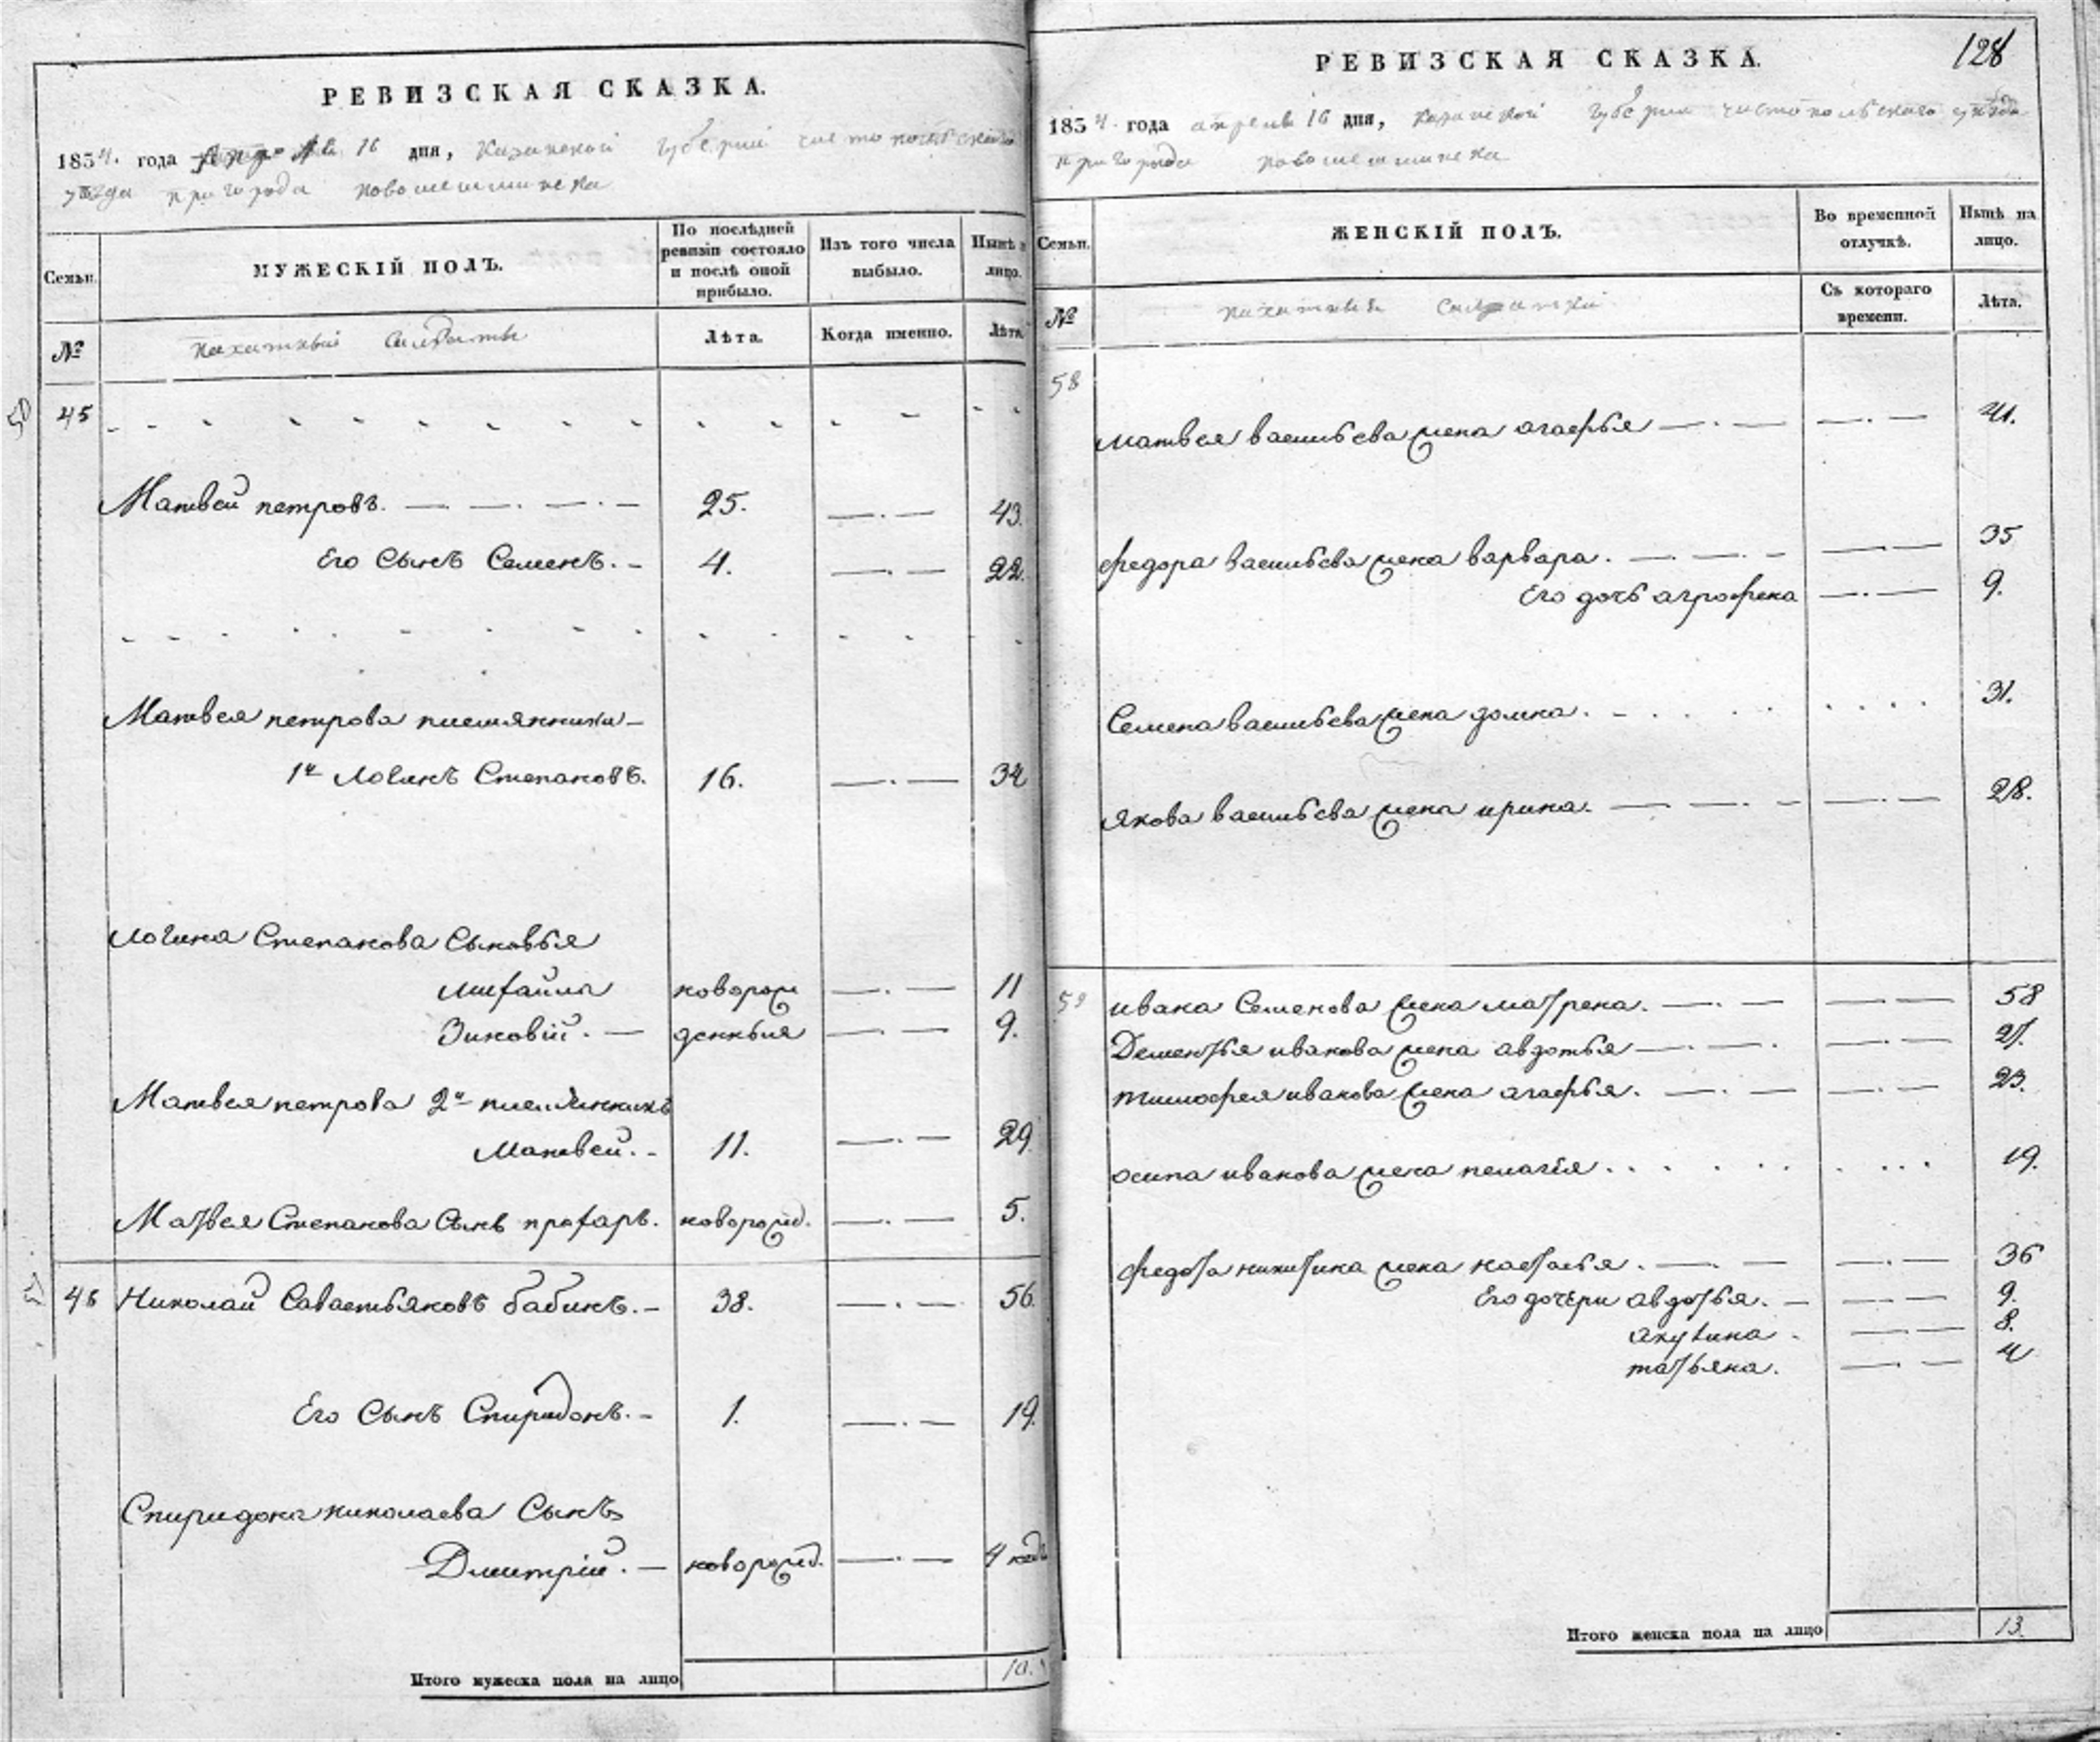 РЕВИЗСКАЯ СКАЗКА.
1854. года апреля 16 дня, Казанской губернии чистопольскаго
уѣзда пригорода новошешминска
Семьи.
МУЖЕСКІЙ ПОЛЪ.
По послѣдней ревизіи состояло и послѣ оной прибыло.
Изъ того числа выбыло.
Нынѣ на лицо.
№
пахатныи Салдаты
Лѣта.
Когда именно.
Лѣта.
45
Матвей петровъ. 25. 43.
Его Сынъ Семенъ. 4. 22.
Матвея петрова племянники
1й Логинъ Степановъ. 16. 34
Логина Степанова Сыновья
михайла новорож 11
Зиновій. денныя 9.
Матвея петрова 2й племянникъ
Матвей. 11. 29
Матвея Степанова Сынъ прохаръ. новорожд. 5.
46 Николай Савастьяновъ бабинъ. 38. 56.
Его Сынъ Спиридонъ. 1. 19.
Спиридона николаева Сынъ
Дмитрій. новорожд. 4 нед
Итого мужеска пола на лицо 10.
РЕВИЗСКАЯ СКАЗКА.
128
1854. года апреля 16 дня, Казанской губернии чистопольскаго уѣзда
пригорода новошешминска
Семьи.
ЖЕНСКІЙ ПОЛЪ.
Во временной отлучкѣ.
Нынѣ на лицо.
№
пахатныя Салдатки
Съ котораго времени.
Лѣта.
58
Матвея васильева жена агафья 41.
федора васильева жена варвара. 35
Его дочь агрофена 9.
Семена васильева жена домна. 31.
якова васильева жена ирина. 28.
59 ивана Семенова жена матрена. 58
Дементья иванова жена авдотья 27.
тимофея иванова жена агафья. 23.
осипа иванова жена пелагія. 19.
федота никитина жена настасья. 36
Его дочери авдотья. 9.
акулина. 8.
татьяна. 4
Итого женска пола на лицо 13.